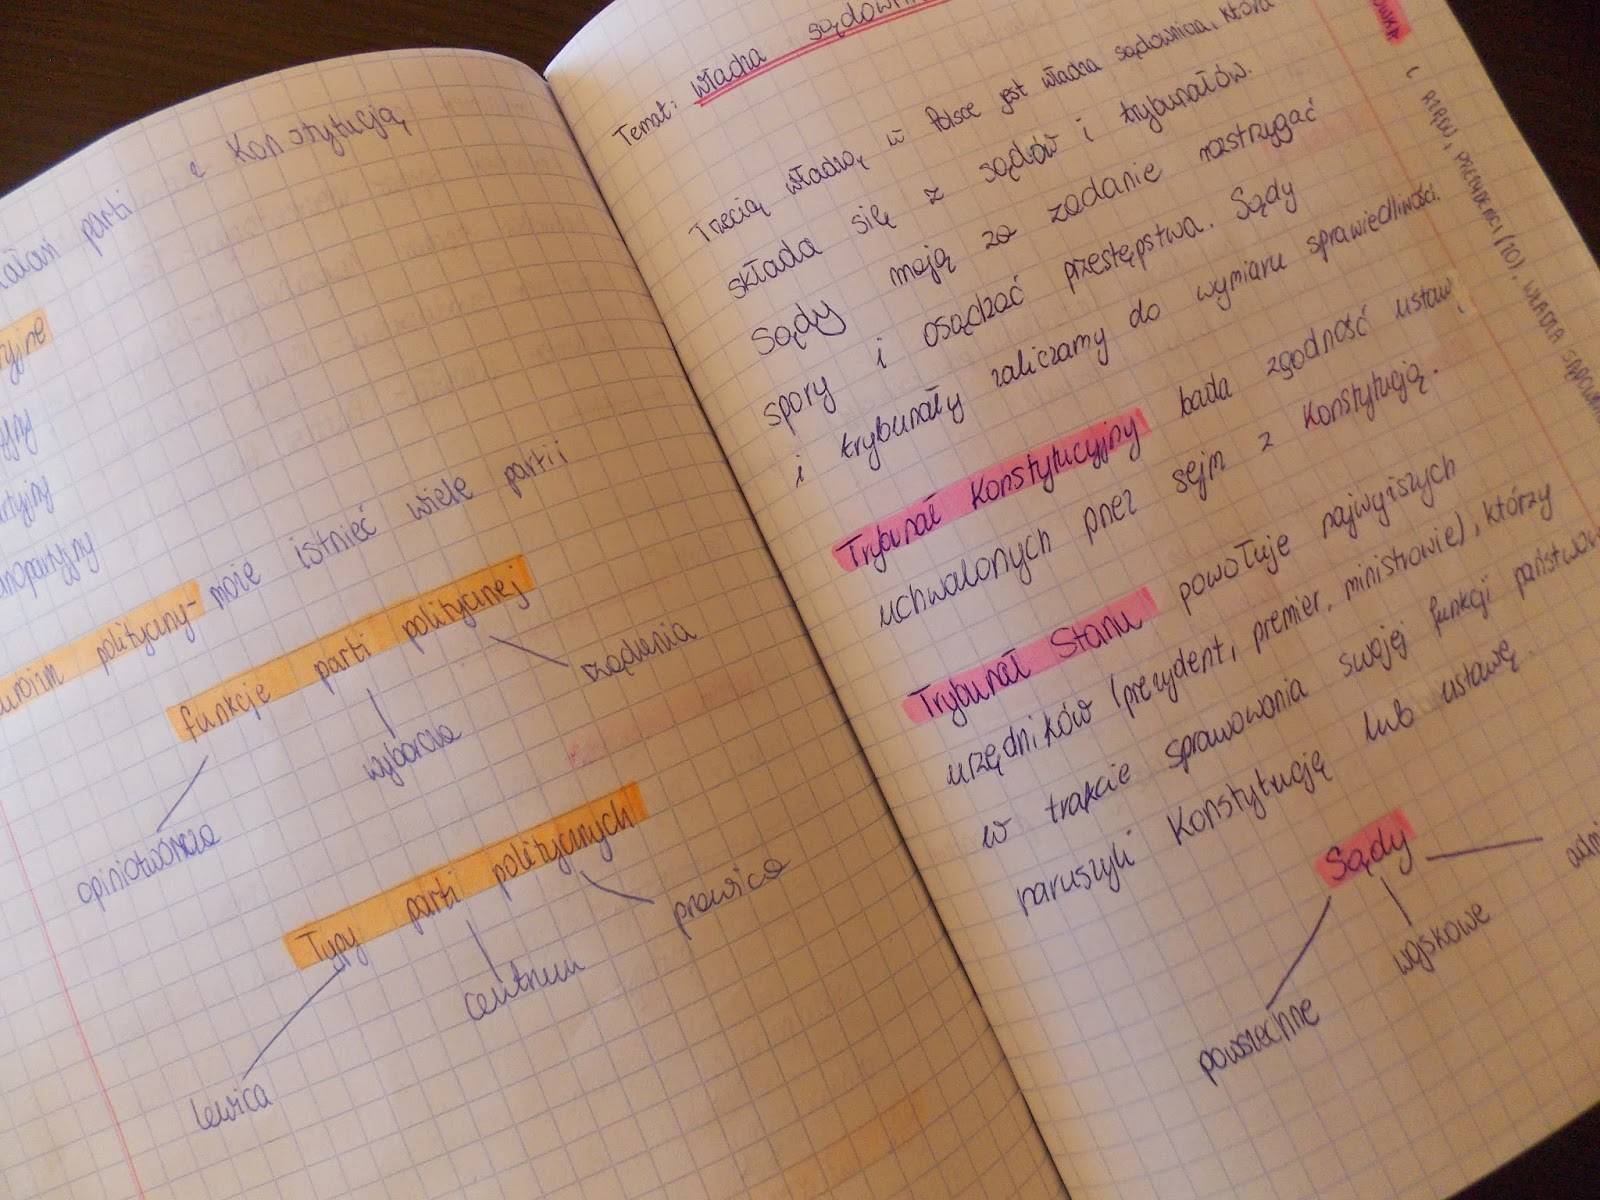 parti z Konstytucją
partyjny
polityczny- może istnieć wiele partii
funkcje parti politycznej
opiniotwórcza
wyborcza
rządzenia
Typy parti politycznych
lewica
centrum
prawica
Temat: Władza
Trzecią władzą w Polsce jest władza sądownicza, która
składa się z sądów i trybunałów.
Sądy mają za zadanie rozstrzygać
spory i osądzać przestępstwa. Sądy
i trybunały zaliczamy do wymiaru sprawiedliwości.
Trybunał Konstytucyjny bada zgodność ustaw,
uchwalonych przez sejm z Konstytucją.
Trybunał Stanu powołuje najwyższych
urzędników (prezydent, premier, ministrowie), którzy
w trakcie sprawowania swojej funkcji
naruszyli Konstytucję lub ustawę.
Sądy
powszechne
wojskowe
RZĄDU, PREZYDENCI (10), WŁADZA